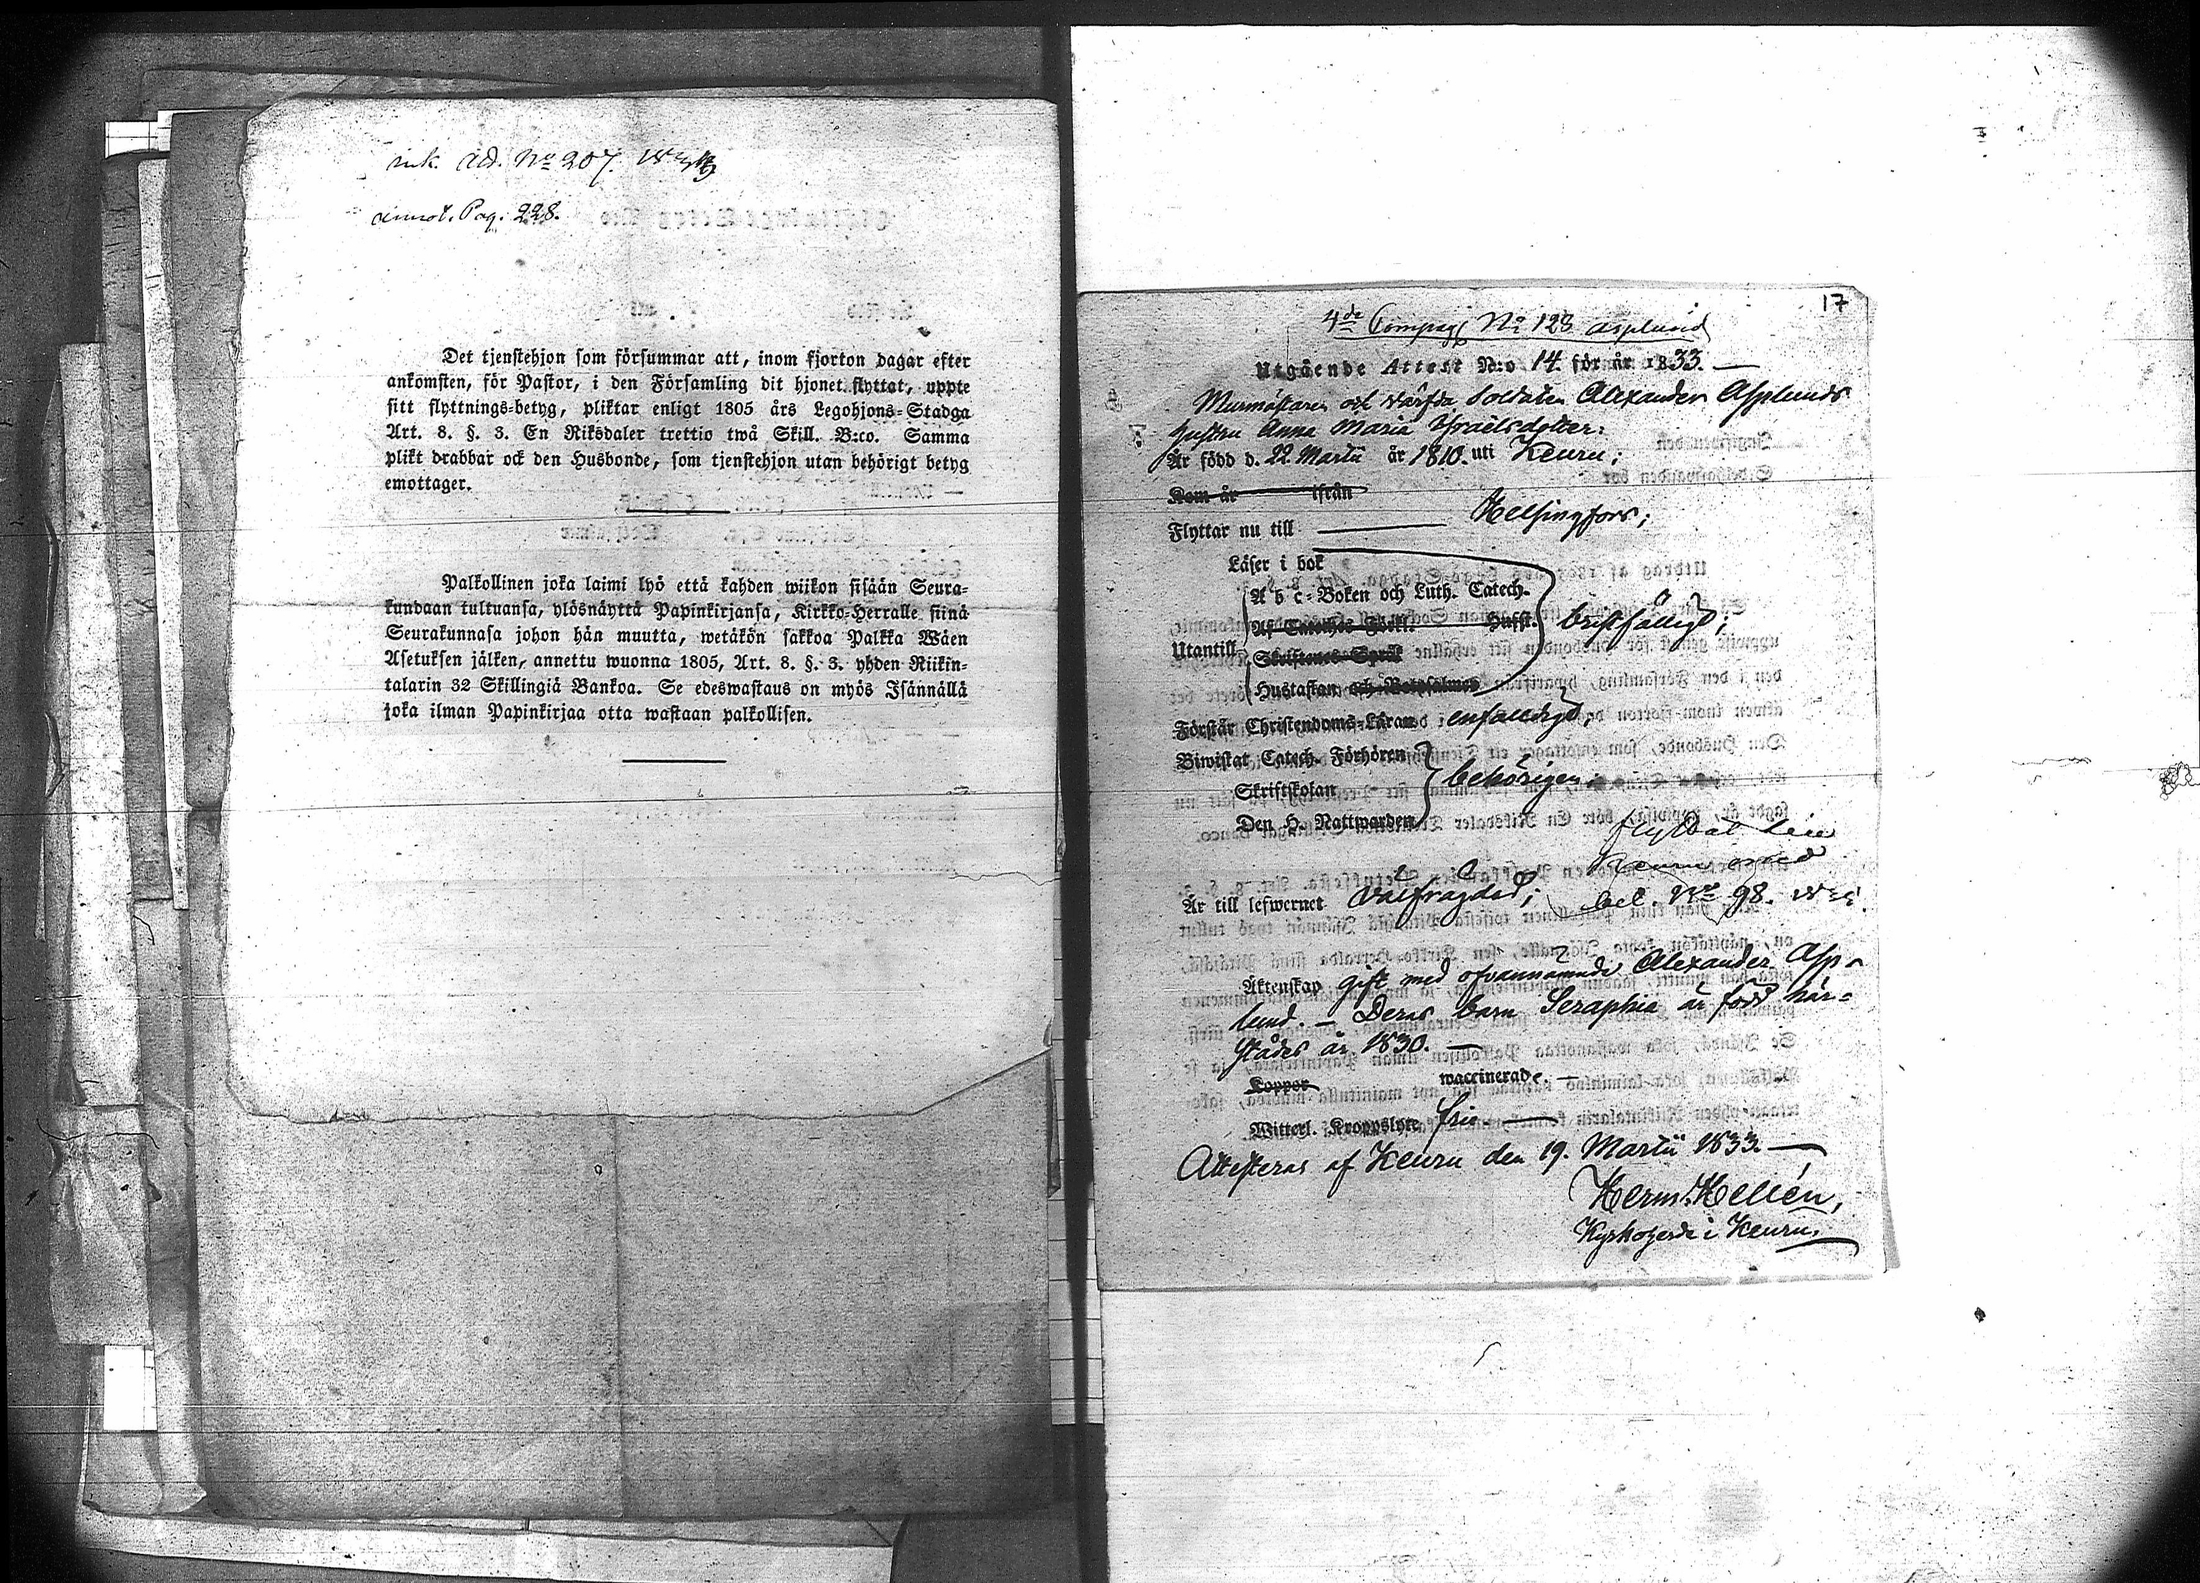 ink. ad. No 207.
annot. Pag. 228.
Det tjenstehjon som försummar att, inom fjorton dagar efter
ankomsten, för Pastor, i den Församling dit hjonet flyttat, uppte
sitt flyttnings=betyg, pliktar enligt 1805 års Legohjons=Stadga
Art. 8. §. 3. En Riksdaler trettio twå Skill. B:co. Samma
plikt drabbar ock den Husbonde, som tjenstehjon utan behörigt betyg
emottager.
Palkollinen joka laimi lyö että kahden wiikon sisään Seura=
kundaan tultuansa, ylösnäyttä Papinkirjansa, Kirkko=Herralle siinä
Seurakunnasa johon hän muutta, wetäkön sakkoa Palkka Wäen
Asetuksen jälken, annettu wuonna 1805, Art. 8. §. 3. yhden Riikin=
talarin 32 Skillingiä Bankoa. Se edeswastaus on myös Isännällä
joka ilman Papinkirjaa otta wastaan palkollisen.
17
4de Compag No 128 Asplund
Utgående Attest N:o 14. för år 1833.
Murmästaren och värfda Soldaten Alexander Asplunds
hustru Anna Maria Israelsdotter:
Är född d. 22 Martii år 1810. uti Keuru;
Kom år ifrån
Flyttar nu till Helsingfors;
Läser i bok
A b c=Boken och Luth. Catech.
Utantill
Hustaflan och Botpsalmer
Förstår Christendoms=Läran enfaldigt;
Biwistat Catech. Förhören
Skriftskolan behörigen;
Den H. Nattwarden
flyttat till
Keuru med
Är till lefwernet välfrägdad; bet. No 98.
Äktenskap gift med ofvannämnde Alexander Asp=
lund. — Deras barn Seraphia är född här=
städes år 1830. —
Koppor waccinerade —
Witterl. Kroppslyte fri —
Attesteras af Keuru den 19. Martii 1833. —
Herm. Hellén,
Kyrkoherde i Keuru.